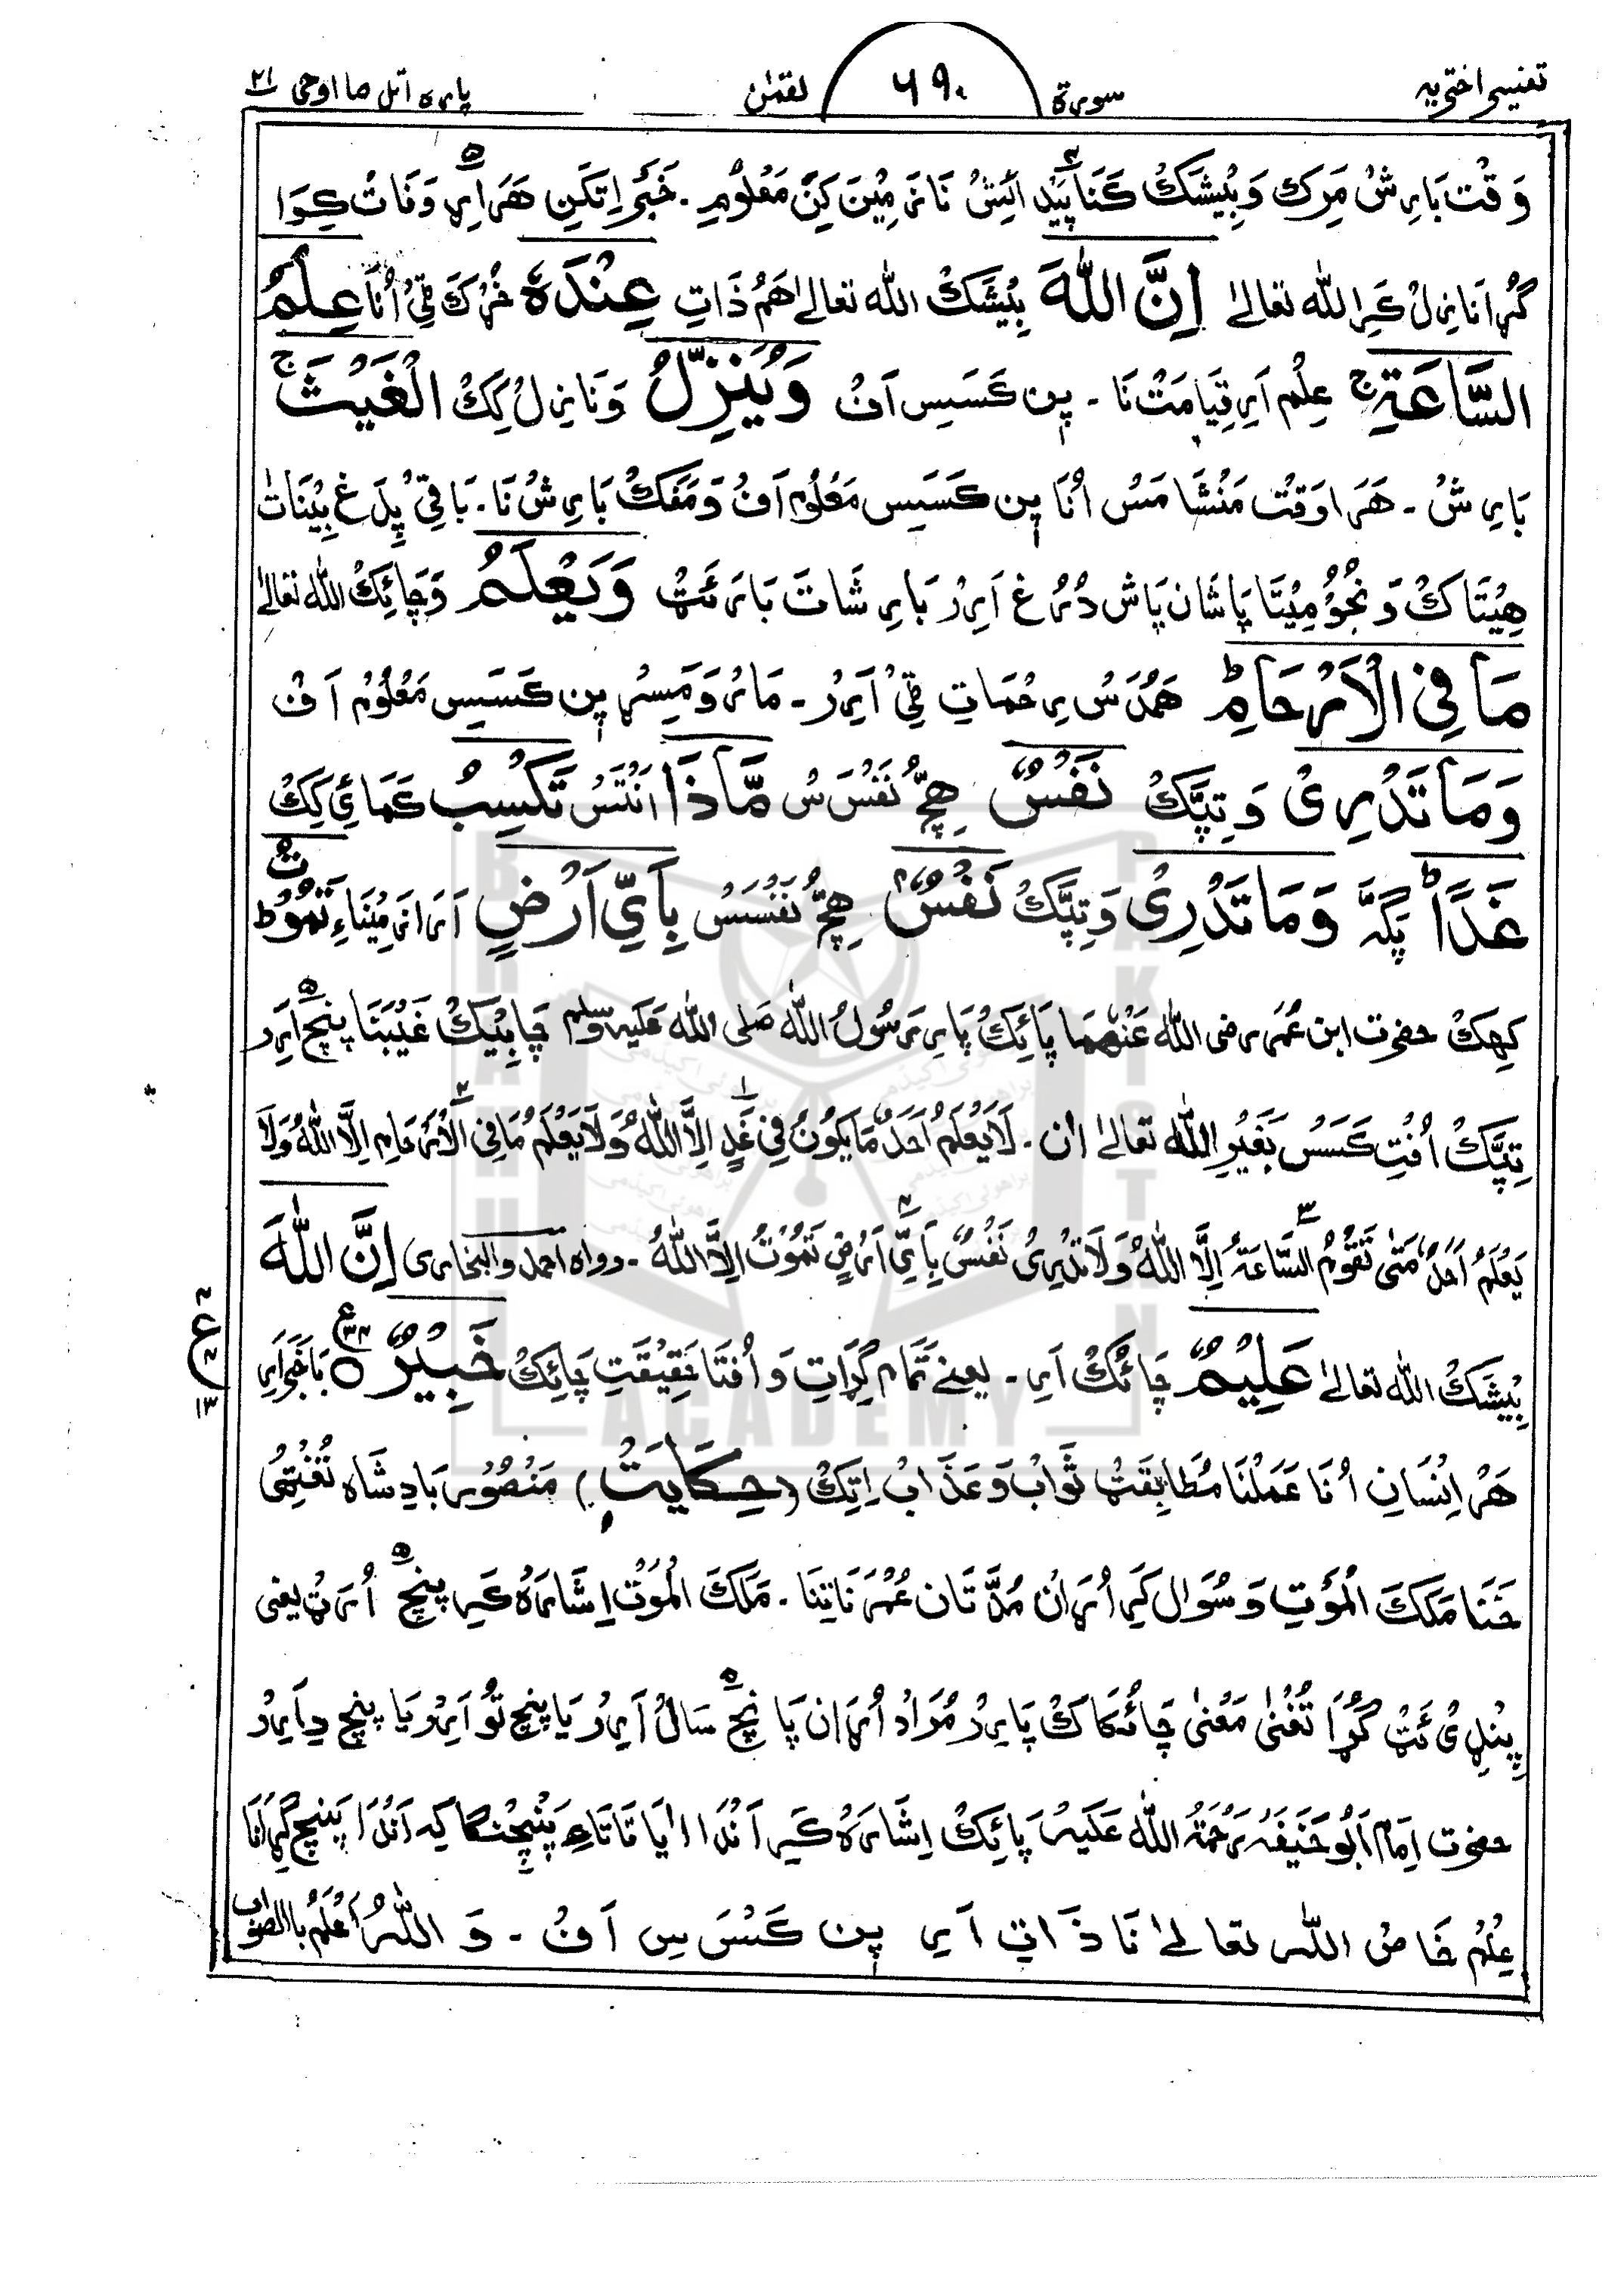 تفسیر اختریہ سورۃ ۶۹۰ لقمٰن پارہ اتل ما اوحی ۲۱
وَقْت بَارِشُ مَرِک وَ بِیْشَکْ کَنَا پَیْدِ اَئِشْ نَا زَمِیْنَ کِنْ مَعْلُوْمِ ۔ خَبَر اِتَکَنِ هَرَ اَرِی وَفَاتْ کِوَا
گُڑا نَازِلْ کَرِ اللّٰه تعالیٰ اِنَّ اللّٰهَ بِیْشَکْ اللّٰه تعالیٰ اهَمْ ذَاتِ عِنْدَهٗ خُڑک قِیْ اُنَا عِلْمُ
السَّاعَةِ ج عِلْم اَرِ قِیَامَتْ نَا ۔ پِن کَسَسِ اَفْ وَیُنَزِّلُ وَ نَازِلْ کِکْ الْغَیْثَ ج
بَارِشْ ۔ هَرَا وَقْت مَنْشَا مَسُ اُنَا پِن کَسَسِ مَعْلُوْم اَفْ وَ مَفَکْ بَارِشْ نَا ۔ بَاقِیْ پِدَغ بِیْنَاتْ
هِیْتَاکْ وَ نُجُوْمِیْتَا پَاشَان پَاش دُرُغ اَرِرْ بَارِشَاتَ بَارَئَٹ وَیَعْلَمُ وَ چَائِکْ اللّٰه تعالیٰ
مَا فِی الْاَرْحَامِ ط هَمْدَسُ رِحْمَاتِ قِیْ اَرِرْ ۔ مَار وَ مَسِر پِن کَسَسِ مَعْلُوْم اَفْ
وَمَا تَدْرِیْ وَ تِپَّکْ نَفْسٌ هِچُّ نَفْسَ سُ مَّاذَا اَنْتَسُ تَکْسِبُ کَمَائِ کِکْ
غَدًا ط پَگَہ وَمَا تَدْرِیْ وَ تِپَّکْ نَفْسٌ هِچُّ نَفْسَسُ بِاَیِّ اَرْضٍ اَرَا زَمِیْنَاءِ تَمُوْتُ ط
کِهِکْ حضرت ابن عُمَر رضی اللّٰه عَنْهُمَا پَائِکْ پَارِ رَسُوْلُ اللّٰه صَلی اللّٰه عَلَیہ وسلم چَابِیْکْ غَیْبَنَا پنچ ۵ اَرِر
تِپَّکْ اُفْتِ کَسَسُ بَغَیْرِ اللّٰه تعالیٰ اَن ۔ لَا یَعْلَمُ اَحَدٌ مَا یَکُوْنُ فِیْ غَدٍ اِلَّا اللّٰهُ وَلَا یَعْلَمُ مَا فِی الْاَرْحَامِ اِلَّا اللّٰهُ وَلَا
یَعْلَمُ اَحَدٌ مَتٰی تَقُوْمُ السَّاعَةُ اِلَّا اللّٰهُ وَلَا تَدْرِیْ نَفْسٌ بِاَیِّ اَرْضٍ تَمُوْتُ اِلَّا اللّٰهُ ۔ رواه احمد والبخاری اِنَّ اللّٰهَ
بِیْشَکْ اللّٰه تعالیٰ عَلِیْمٌ چَائِکْ اَرِ ۔ یعنے تَمَام گِڑَاتِ وَ اُفْتَا حَقِیْقَتِ چَائِکْ خَبِیْرٌ ۝ ۳۴ ع بَاخَبَر اَرِ
هَرْ اِنْسَانِ اُنَا عَمَلْنَا مُطَابِقَٹ ثَوَابْ وَ عَذَابْ اِتِکْ (حِکَایَتْ) مَنْصُوْر بَادِشَاہ تُغْتِیْ
خَنَا مَلَکَ الْمَوْتِ وَ سُوَال کَرِ اُڑَان مُدَّتَان عُمْرَنَا تِنَا ۔ مَلَکَ الْمَوْت اِشَارَہ کَرِ پنچ ۵ اُرَٹ یعنی
پِنْدِیْ ئَٹ گُڑَا تُغْنٰی مَعْنٰی چَائُکَاکْ پَارِرْ مُرَادْ اُڑَان پَانچ ۵ سَالْ اَرِرْ یَا پنچ تُو اَرِرْ یَا پنچ دِ اَرِرْ
حضرت اِمَام اَبُوحَنِیْفَہ رَحْمَۃُ اللّٰه عَلَیہ پَائِکْ اِشَارَہ کَرِ اَنْدَا اٰیَاتَاتَاءِ پَنْچِنْگَا کِہ اَنْدَا پَنچ گِڑَانَا
عِلْم خَاصْ اللّٰه تعالےٰ نَا ذَاتِ اَرِ پِن کَسَسِ اَفْ ۔ وَاللّٰهُ اَعْلَمُ بِالصَّوَاب
ع ۴ ۱۳
BRAHUI ACADEMY PAKISTAN